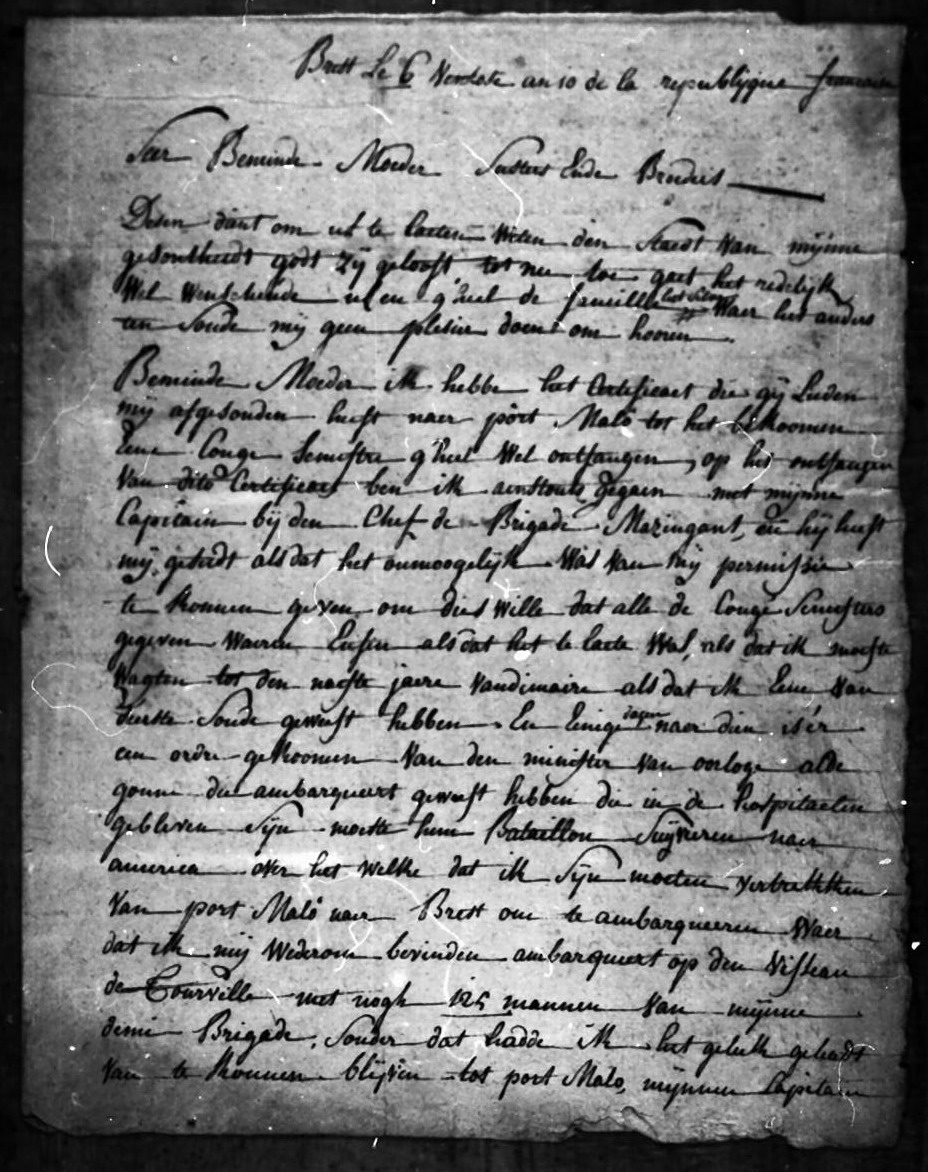 Brest Le 6 Vendose an 10 de la republijque francaise
Seer Beminde Moeder Susters Ende Broeders
Desen dint om ul te laeten Weten den Staedt Van mijnne
gesontheidt godt Zij gelooft, tot nu toe gaet het redelijk
Wel Wenschende ul en g'heel de famille het selve Waer het anders
ten Soude mij geen plesier doen om hooren.
Beminde Moeder ik hebbe het Certificaet die gij Lieden
mij afgesonden heeft naer port Malo tot het bekoomen
Eene Conge Semestre g'heel Wel ontfangen, op het ontfangen
Van dito Certificaet ben ik aenstonts gegaen met mijnne
Capitain bij den Chef de Brigade Mazingant, en hij heeft
mij geseidt als dat het onmoogelijk Was Van mij permissie
te konnen geven om dies Wille dat alle de Conge Semesters
gegeven Waeren Ensen als dat het te laete Was, als dat ik moeste
Wagten tot den naeste jaere Vandimaire als dat ik Eene Van
d'eerste Soude geweest hebben. En Eenige dagen naer dien is'er
een ordre gekoomen Van den minister Van oorloge al de
gonne die ambarqueert geweest hebben die in de hospitaelen
gebleven Sijn moeste hun Bataillon Suijveren naer
america over het Welke dat ik Sijn moeten vertrekken
Van port Malo naer Brest om te ambarqueeren Waer
dat ik mij Wederom bevinden ambarqueert op den Visseau
de Tourville met nogh 125 mannen Van mijnne
demi Brigade, Sonder dat hadde ik het geluk gehadt
Van te konnen blijven tot port Malo, mijnnen Capitain